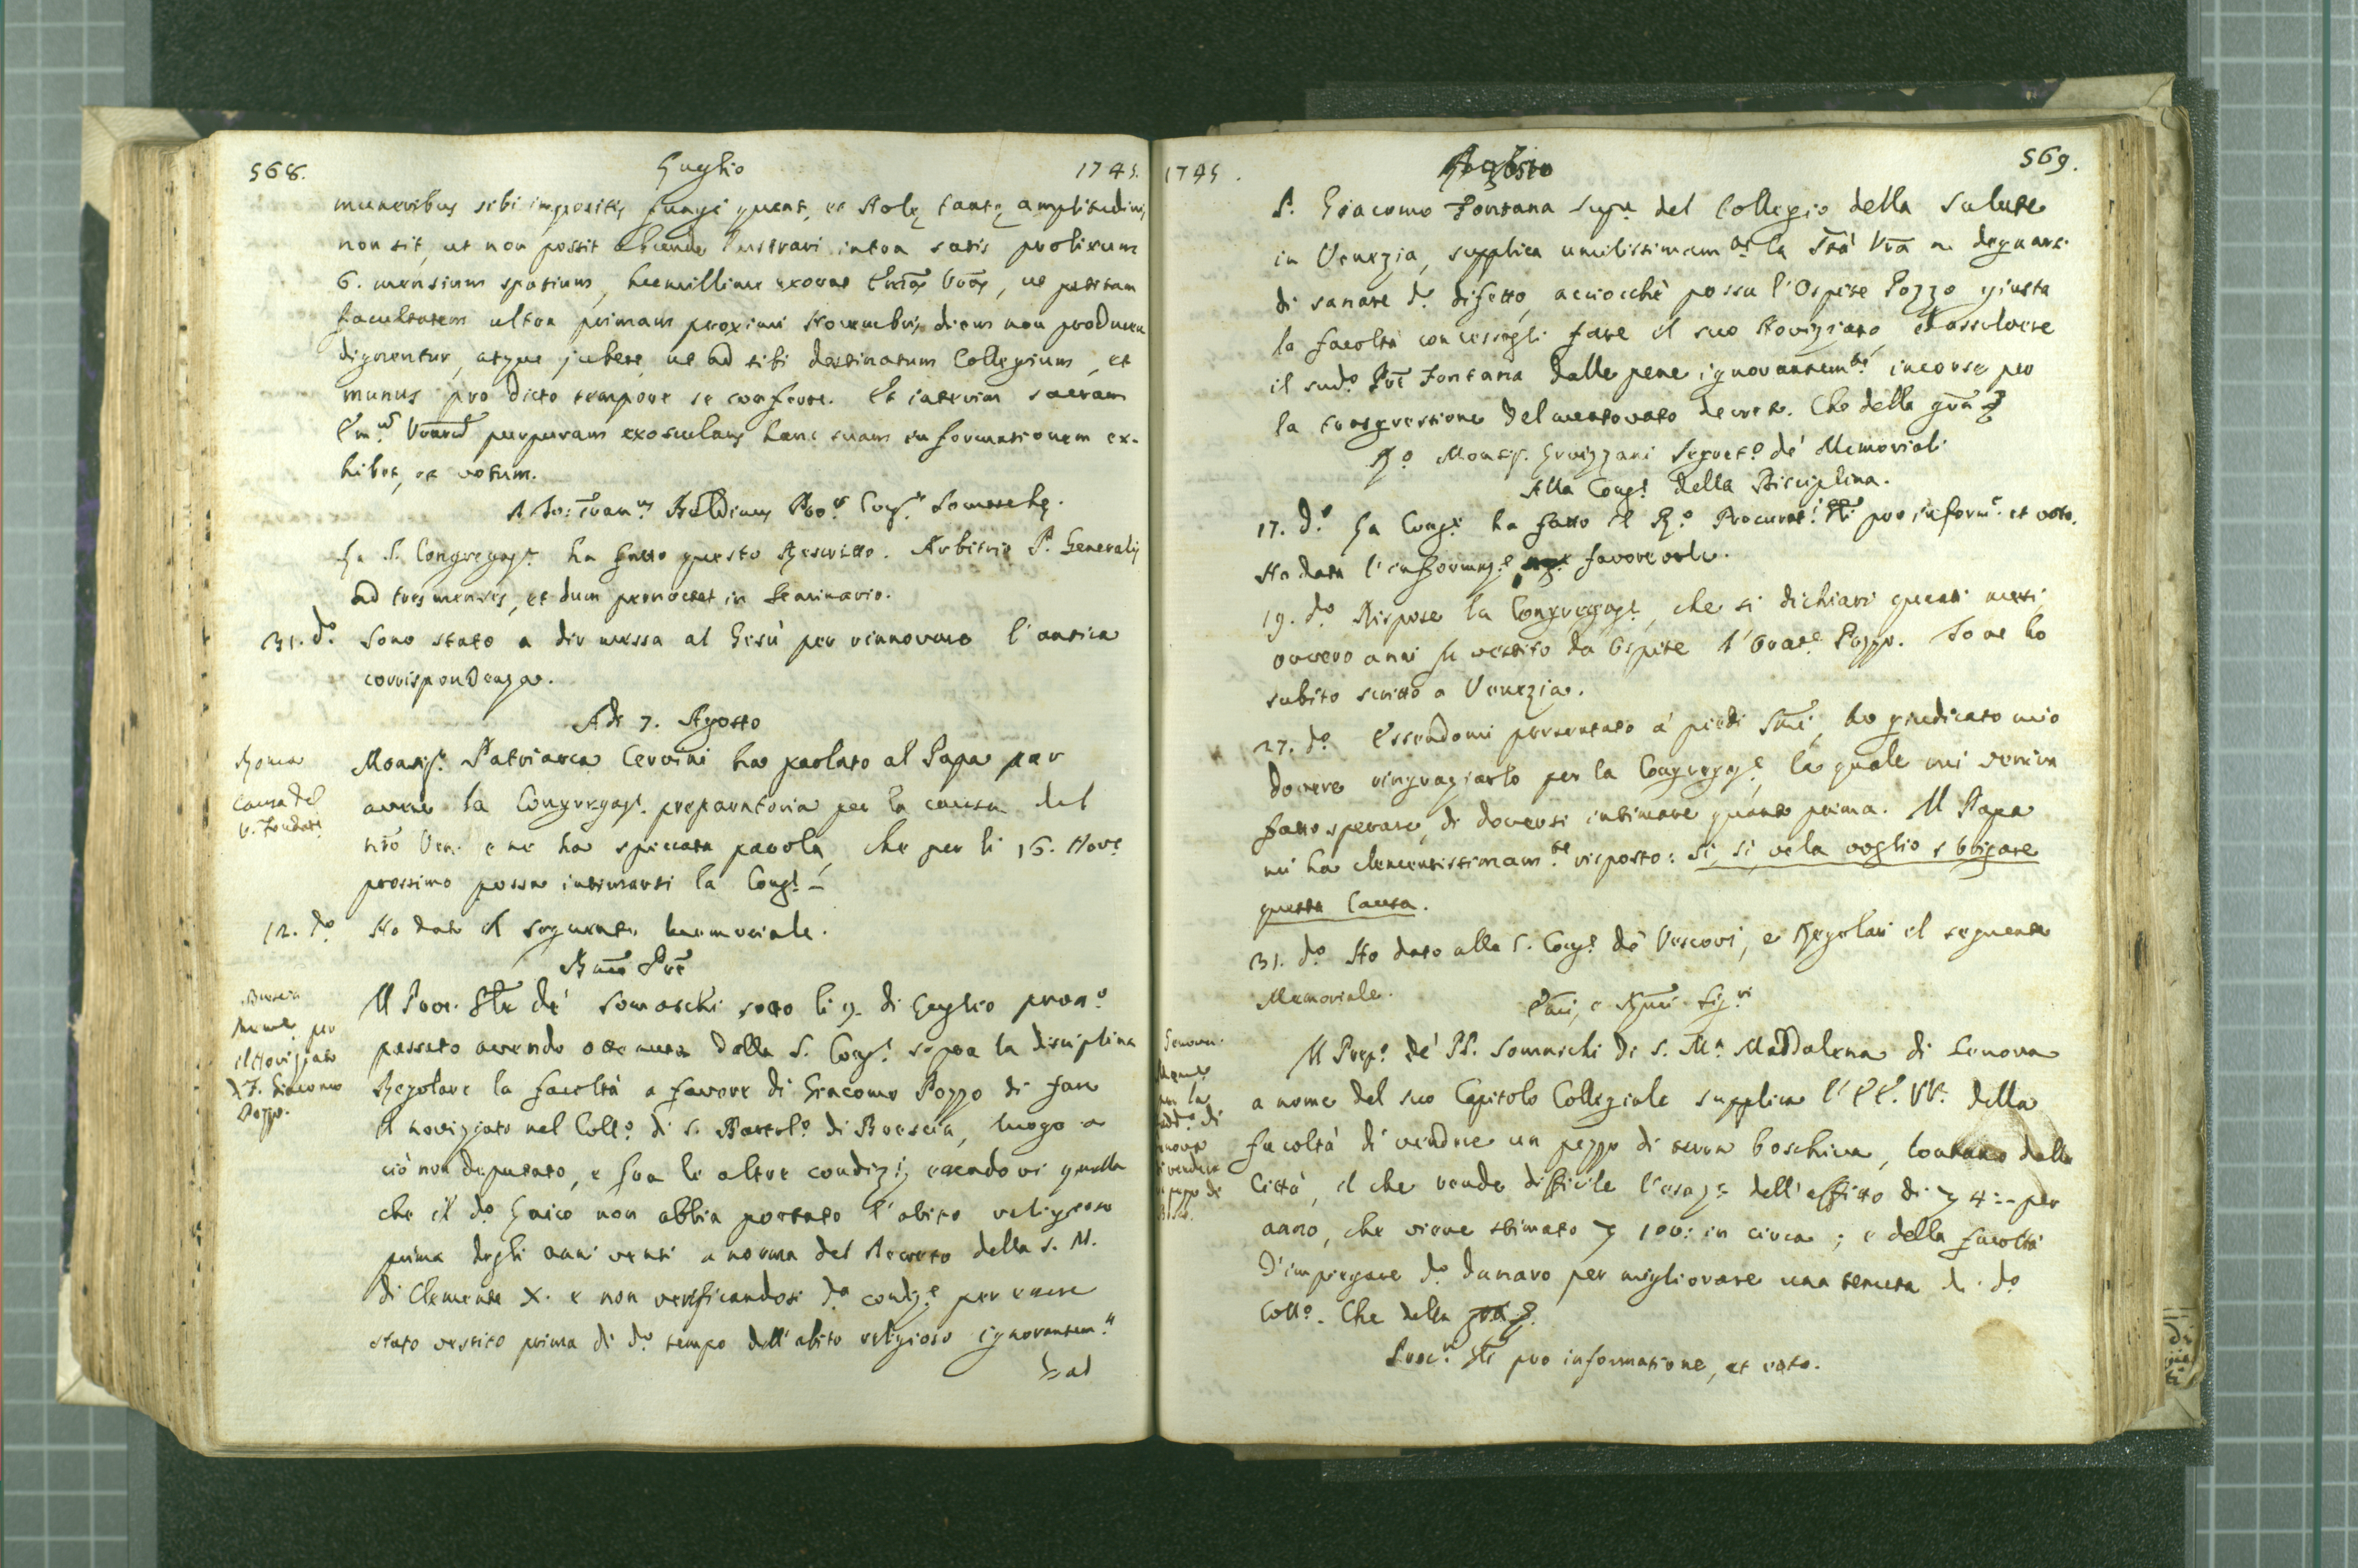 568. Luglio 1745.
muneribus sibi impositis fungi queat, et Molę tantę amplitudinis
non sit, ut non possit abunde lustrari intra satis prolixum
6. mensium spatium, humillime exorat Emãs Vrãs, ut petitam
facultatem ultra primam proximi Novembris diem non producere
dignentur, atque jubere, ut ad sibi destinatum Collegium, et
munus pro dicto tempore se conferre. Et interim sacram
purpuram exosculans hanc suam informationem ex-
hibet, et votum.
Baldinus Cong.is Somaschę.
La S. Congregaz.e ha fatto questo Rescritto. Arbitrio P. Generalis
ad tres menses, et dum pernoctet in Seminario.
31. d.o Sono stato a dir messa al Gesù per rinnovare l'antica
corrispondenza.
Adi 7. Agosto
Roma
Causa del
V. Fondat.e
Monsig.r Patriarca Cervini ha parlato al Papa per
avere la Congregaz.e preparatoria per la causa del
nr̃o Ven. e ne ha spiccata parola, che per li 16. Nov.e
prossimo possa intimarsi la Cong.e
12. d.o Ho dato il seguente memoriale.
Bmõ Prẽ
Brescia
Mem.e per
il Noviziato
di F. Giacomo
Pozzo.
Il Proc. de' Somaschi sotto li 9. di Luglio pross.o
passato avendo ottenuta dalla S. Cong.e sopra la disciplina
Regolare la facoltà a favore di Giacomo Pozzo di fare
il noviziato nel Coll.o di S. Bartol.o di Brescia, luogo a
ciò non deputato, e fra le altre condiz.i essendovi quella
che il d.o Laico non abbia portato l'abito religioso
prima degli anni venti a norma del Decreto della S. M.
di Clemente X. e non verificandosi d.a condiz.e per essere
stato vestito prima di d.o tempo dell'abito religioso ignorantem.te
dal
1745. Agosto 569.
P. Giacomo Fontana Sup.re del Collegio della Salute
in Venezia, supplica umilissimam.te la Stà Vrã a degnarsi
di sanare d.o difetto, acciocchè possa l'Ospite Pozzo giusta
la facoltà concessagli fare il suo Noviziato, ed assolvere
il sud.o Prẽ Fontana dalle pene ignorantem.te incorse per
la trasgressione del mentovato decreto. Che della grã
R.o Monsig. Segret.o de' Memoriali
Alla Cong.e della Disciplina.
17. d.o La Cong.e ha fatto il R.o Procurat. pro inform.e et voto.
Ho data l'informaz.e favorevole.
19. d.o Rispose la Congregaz.e, che si dichiari quanti mesi,
ovvero anni fu vestito da Ospite l'Orat.e Pozzo. Io ne ho
subito scritto a Venezia.
27. d.o Essendomi presentato a' piedi Smĩ, ho giudicato mio
dovere ringraziarlo per la Congregaz.e, la quale mi veniva
fatto sperare, di doversi intimare quanto prima. Il Papa
mi ha clementissimam.te risposto: sì, sì, ve la voglio sbrigare
questa Causa.
31. d.o Ho dato alla S. Cong.e de' Vescovi, e Regolari il seguente
Memoriale.
Emĩ, e Rmĩ Sig.ri
Genova.
Mem.e
Il Prep.o de' PP. Somaschi di S. M.a Maddalena di Genova
a nome del suo Capitolo Collegiale supplica l'EE. VV. della
facoltà di vendere un pezzo di terra boschiva, lontano dalla
Città, il che rende difficile l'esaz.e dell'affitto di 4:- per
anno, che viene stimato 100: in circa; e della facoltà
d'impiegare d.o danaro per migliorare una tenuta di d.o
Coll.o. Che della grã.
pro informatione, et voto.